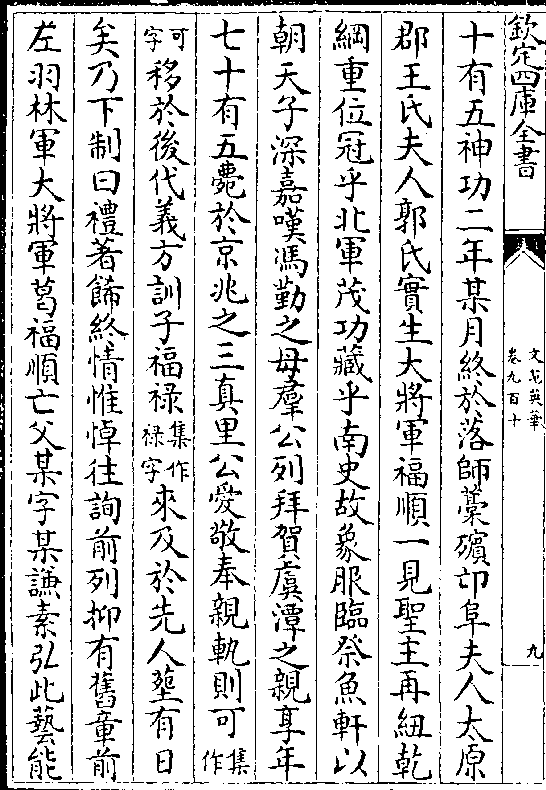 欽定四庫全書
文苑英華
卷九百十
九
十有五神功二年某月終於落師藁殯卬阜夫人太原
郡王氏夫人郭氏實生大將軍福順一見聖主再紐乾
綱重位冠乎北軍茂功藏乎南史故象服臨祭魚軒以
朝天子深嘉嘆馮勤之母羣公列拜賀虞潭之親享年
七十有五薨於京兆之三真里公愛敬奉親軌則可集作
可字移於後代義方訓子福禄集作禄字來及於先人塟有日
矣乃下制曰禮著餙終情惟悼往詢前列抑有舊章前
左羽林軍大將軍葛福順亡父某字某謙素弘此藝能